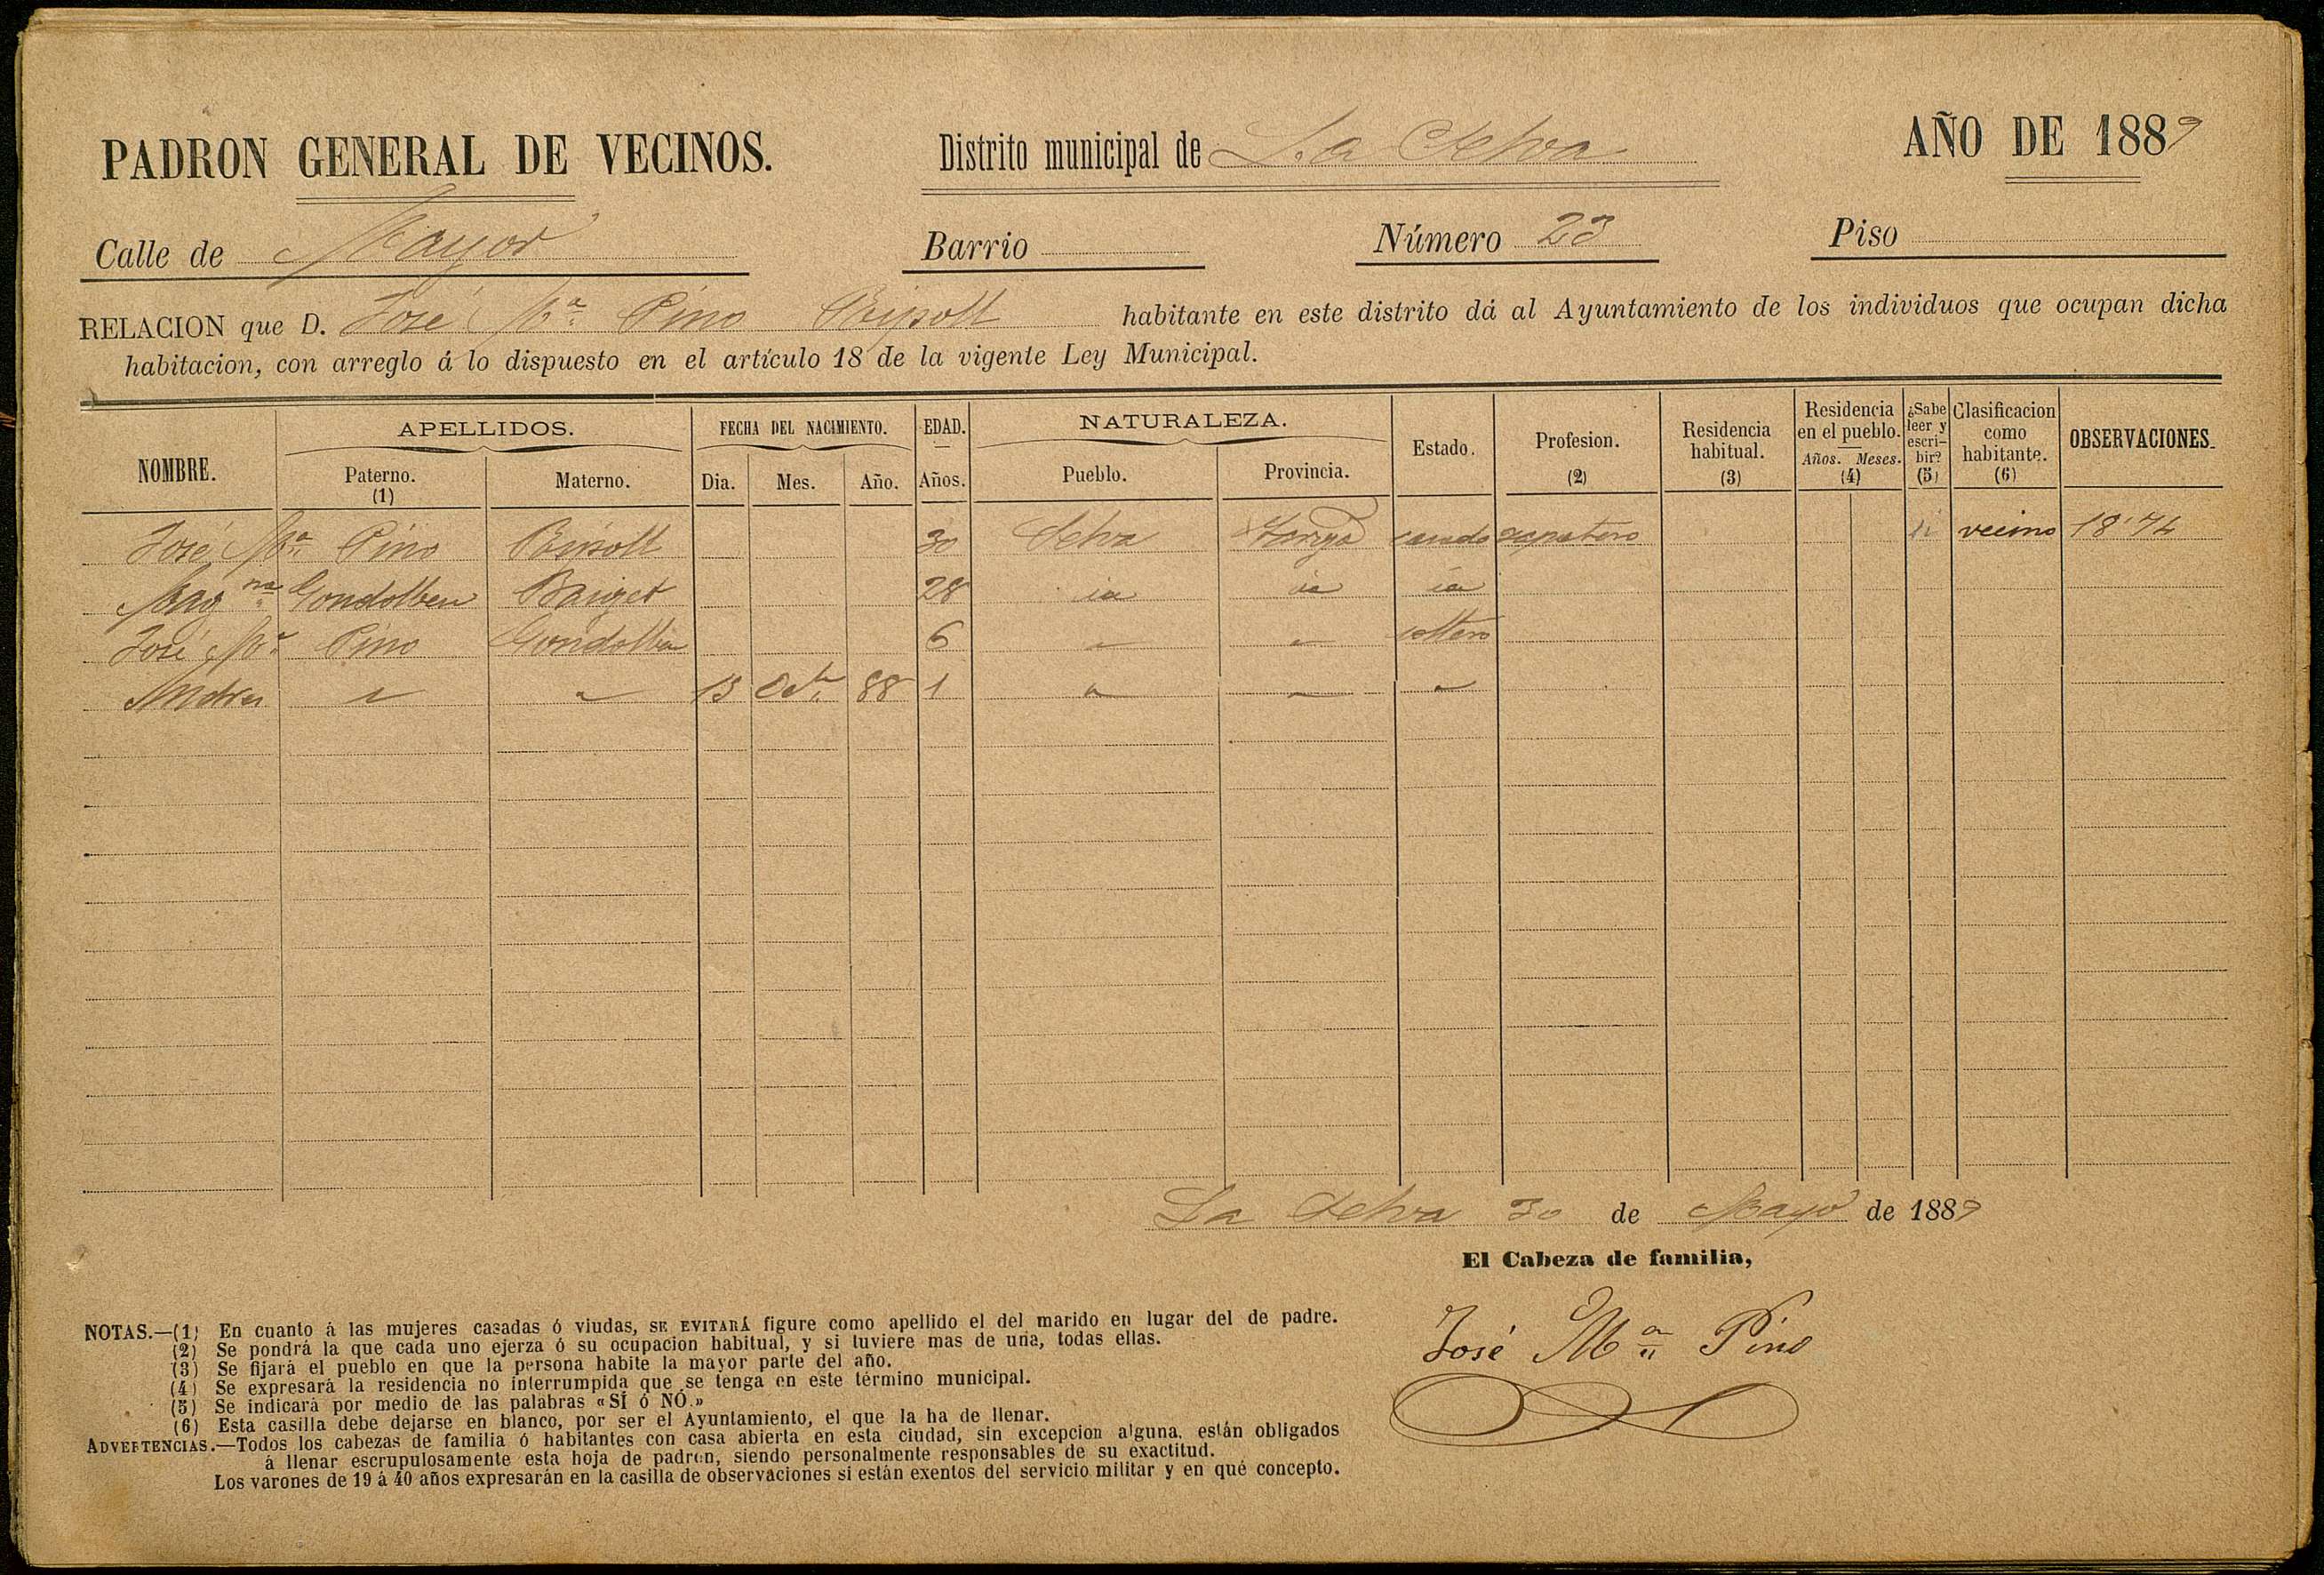 PADRON GENERAL DE VECINOS. Distrito municipal de La Selva AÑO DE 1889
Calle de Mayor Barrio Número 23 Piso
RELACION que D. José Mª Pino Ripoll habitante en este distrito dá al Ayuntamiento de los individuos que ocupan dicha
habitacion, con arreglo á lo dispuesto en el artículo 18 de la vigente Ley Municipal.
NOMBRE. APELLIDOS. Paterno. (1) Materno. FECHA DEL NACIMIENTO. Dia. Mes. Año. EDAD. Años. NATURALEZA. Pueblo. Provincia. Estado. Profesion. (2) Residencia habitual. (3) Residencia en el pueblo. Años. Meses. (4) ¿Sabe leer y escribir? (5) Clasificacion como habitante. (6) OBSERVACIONES.
José Mª Pino Ripoll 30 Selva casado zapatero si vecino 18'74
Magna Gondolbeu 28 id id id
José Mª Pino Gondolbeu 6 " " soltero
Andres " " 13 88 1 " " "
La Selva 30 de Mayo de 1889
El Cabeza de familia,
José Mª Pino
NOTAS.—(1) En cuanto á las mujeres casadas ó viudas, SE EVITARÁ figure como apellido el del marido en lugar del de padre.
(2) Se pondrá la que cada uno ejerza ó su ocupacion habitual, y si tuviere mas de una, todas ellas.
(3) Se fijará el pueblo en que la persona habite la mayor parte del año.
(4) Se expresará la residencia no interrumpida que se tenga en este término municipal.
(5) Se indicará por medio de las palabras «SÍ ó NÓ.»
(6) Esta casilla debe dejarse en blanco, por ser el Ayuntamiento, el que la ha de llenar.
ADVERTENCIAS.—Todos los cabezas de familia ó habitantes con casa abierta en esta ciudad, sin excepcion alguna, están obligados
á llenar escrupulosamente esta hoja de padron, siendo personalmente responsables de su exactitud.
Los varones de 19 á 40 años expresarán en la casilla de observaciones si están exentos del servicio militar y en qué concepto.